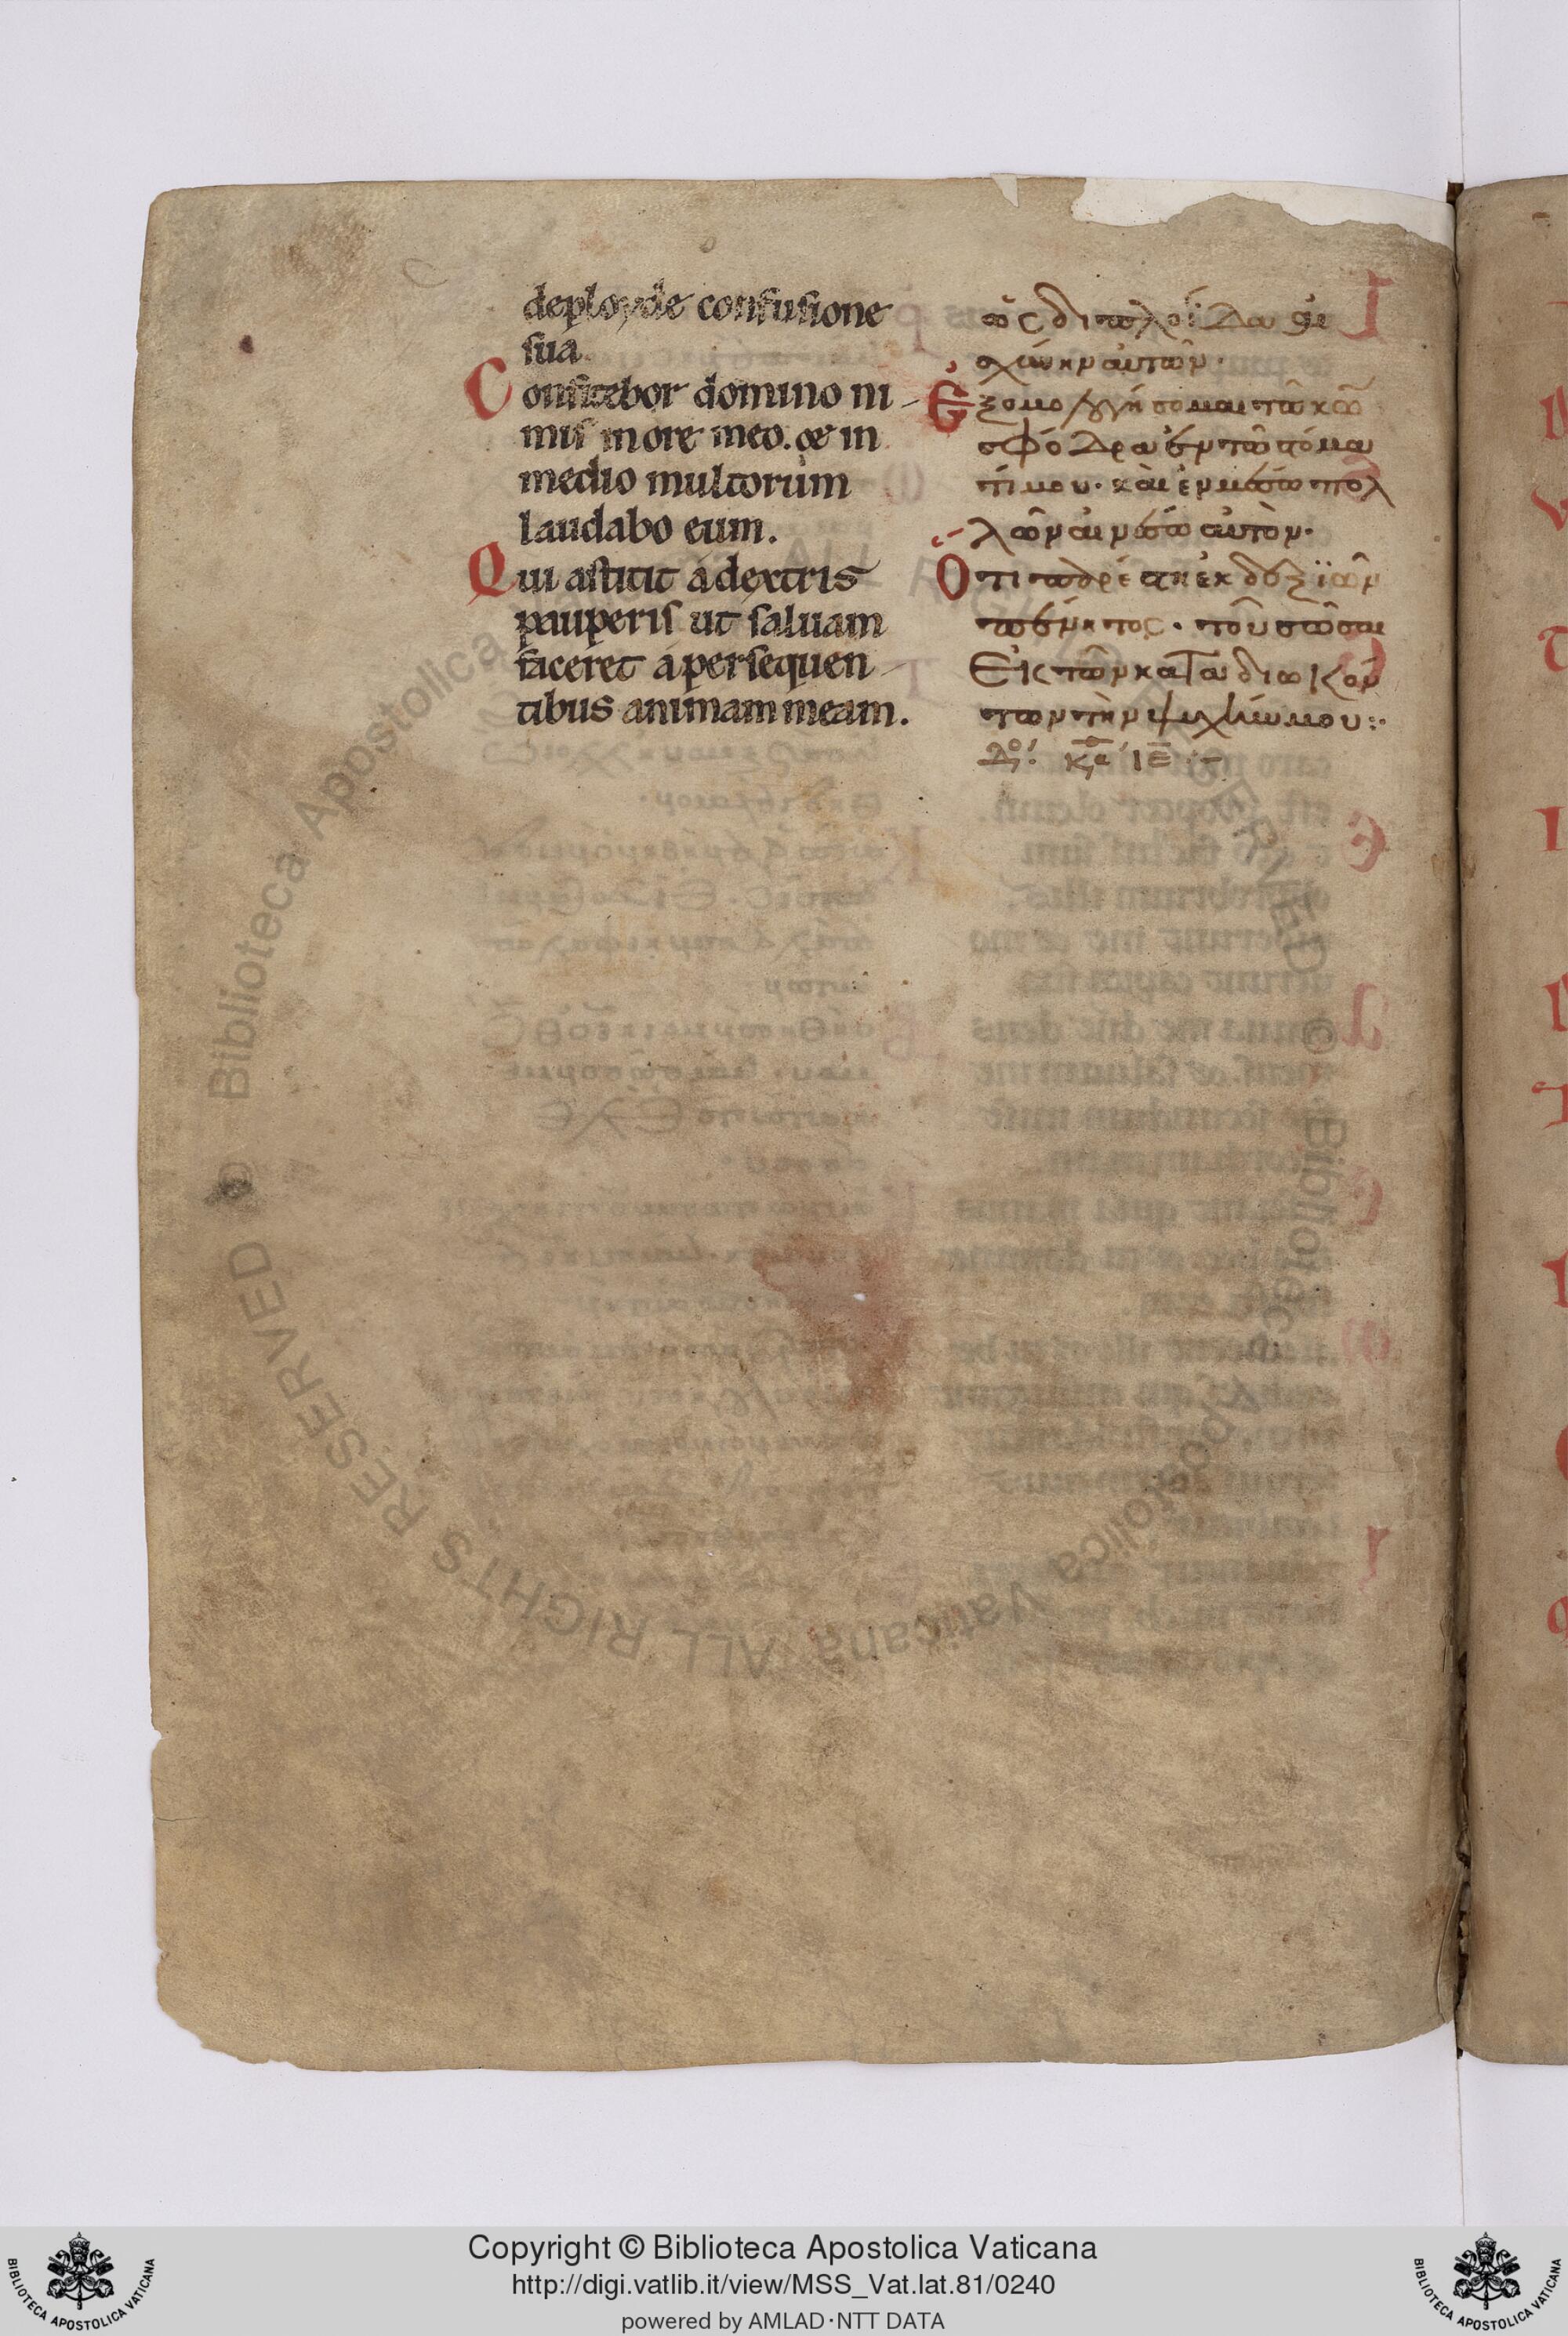 deployde confusione
sua.
Confitebor domino ni
mis in ore meo. & in
medio multorum
laudabo eum.
Qui astitit a dextris
pauperis ut saluam
faceret a persequen
tibus animam meam.
ὡς διπλοΐδα αἰ
σχύνην αὐτῶν·
Ἐξομολογήσομαι τῶ κω
σφόδρα ἐν τῶ στόμα
τί μου· καὶ ἐν μέσω πολ
λῶν αἰνέσω αὐτὸν·
Ὅτι παρέστη ἐκ δεξϊῶν
πένητος· τοῦ σῶσαι
Ἐκ τῶν καταδιωκόν
των τὴν ψυχήν μου:·
Copyright © Biblioteca Apostolica Vaticana
http://digi.vatlib.it/view/MSS_Vat.lat.81/0240
powered by AMLAD·NTT DATA
BIBLIOTECA APOSTOLICA VATICANA
BIBLIOTECA APOSTOLICA VATICANA
© Biblioteca Apostolica Vaticana ALL RIGHTS RESERVED